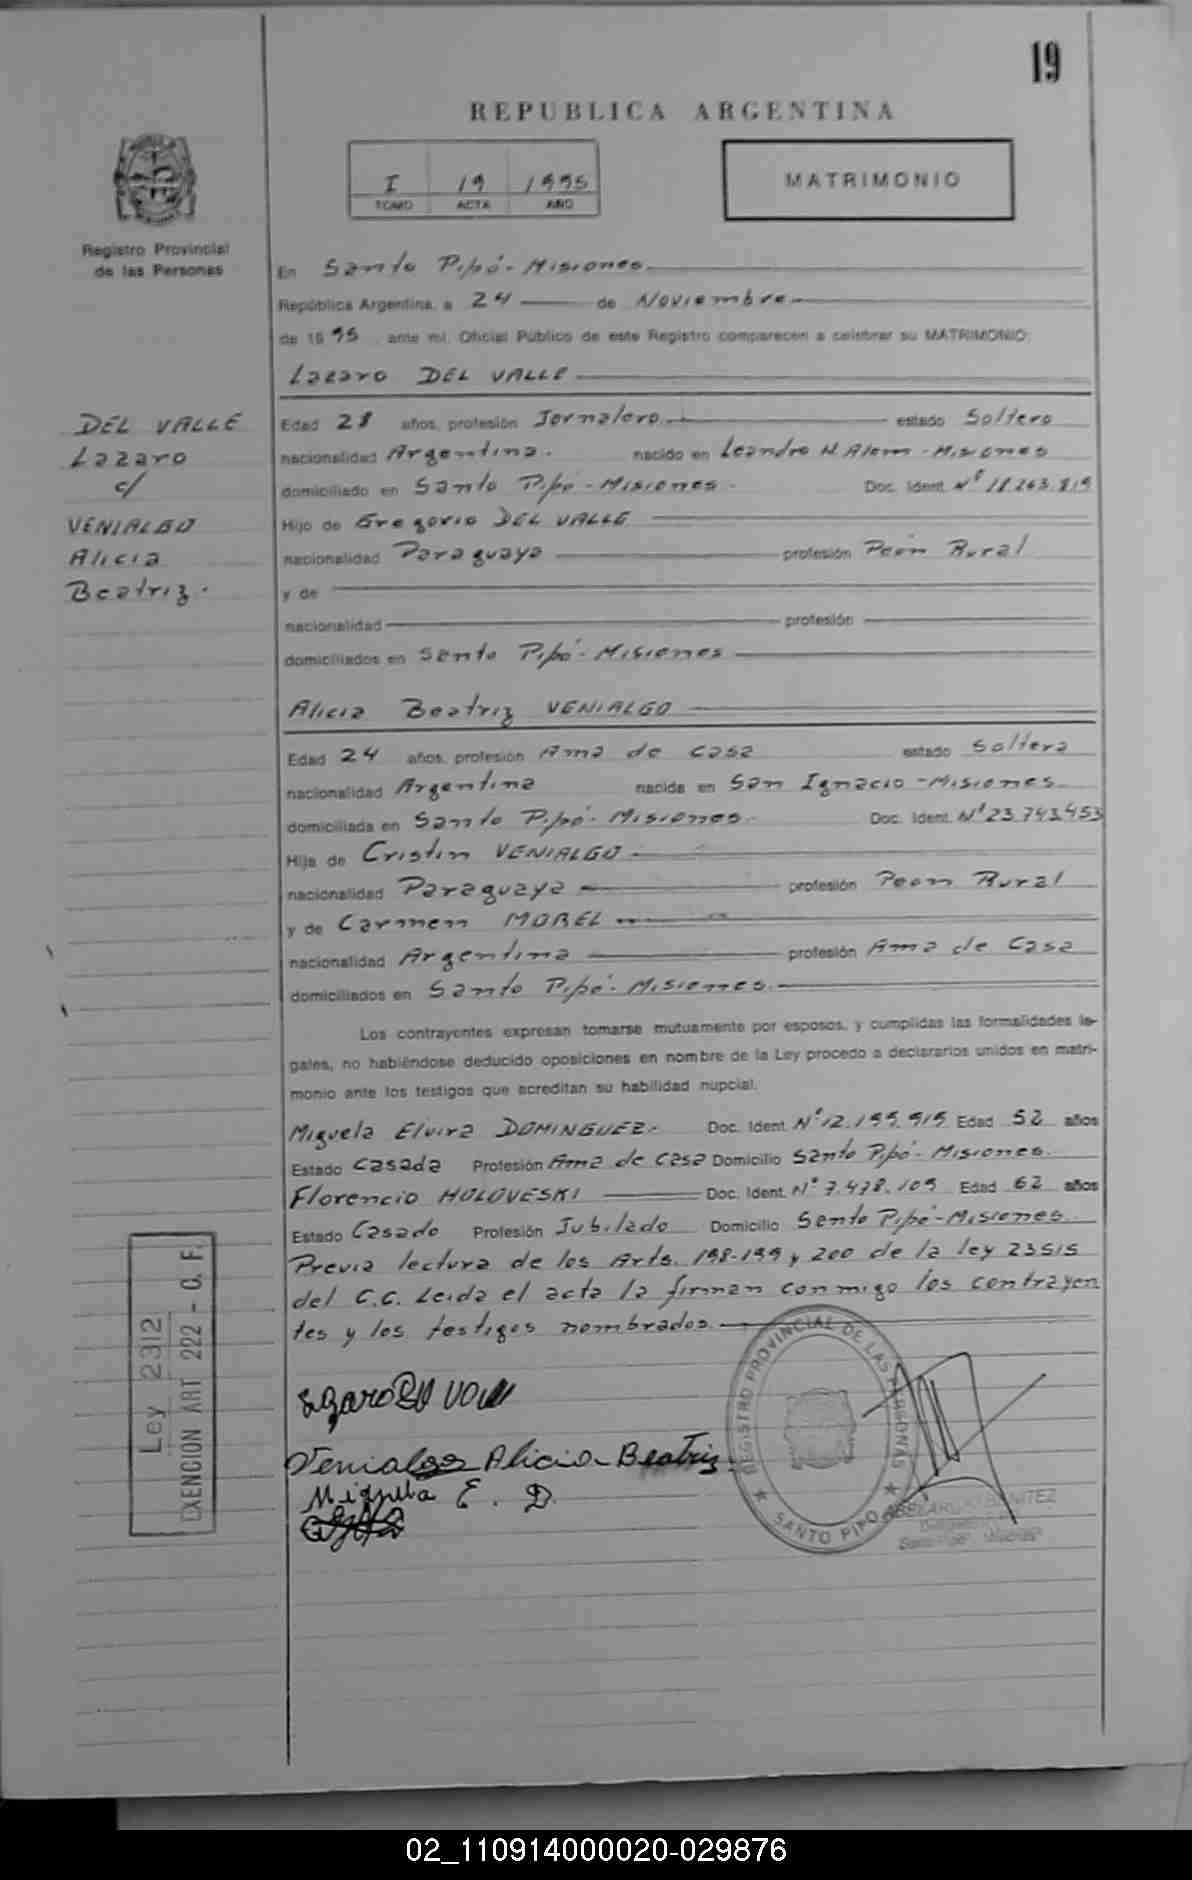 19
REPUBLICA ARGENTINA
I 19 1995
TOMO ACTA AÑO
MATRIMONIO
Registro Provincial
de las Personas
En Santo Pipó - Misiones
República Argentina, a 24 de Noviembre
de 1995, ante mí, Oficial Público de este Registro comparecen a celebrar su MATRIMONIO:
Lazaro DEL VALLE
DEL VALLE
Lazaro
c/
VENIALGO
Alicia
Beatriz.
Edad 28 años, profesión Jornalero estado Soltero
nacionalidad Argentina. nacido en Leandro N. Alem - Misiones
domiciliado en Santo Pipó - Misiones - Doc. Ident. Nº 18.263.819
Hijo de Gregorio DEL VALLE
nacionalidad Paraguaya profesión Peón Rural
y de
nacionalidad profesión
domiciliados en Santo Pipó - Misiones
Alicia Beatriz VENIALGO
Edad 24 años, profesión Ama de Casa estado Soltera
nacionalidad Argentina nacida en San Ignacio - Misiones
domiciliada en Santo Pipó - Misiones - Doc. Ident. Nº 23.743.453
Hija de Cristin VENIALGO
nacionalidad Paraguaya profesión Peon Rural
y de Carmen MOREL
nacionalidad Argentina profesión Ama de Casa
domiciliados en Santo Pipó - Misiones.
Los contrayentes expresan tomarse mutuamente por esposos, y cumplidas las formalidades le-
gales, no habiéndose deducido oposiciones en nombre de la Ley procedo a declararlos unidos en matri-
monio ante los testigos que acreditan su habilidad nupcial.
Miguela Elvira DOMINGUEZ - Doc. Ident. Nº 12.199.919 Edad 52 años
Estado Casada Profesión Ama de Casa Domicilio Santo Pipó - Misiones.
Florencio HOLOVESKI Doc. Ident. Nº 7.478.109 Edad 62 años
Estado Casado Profesión Jubilado Domicilio Santo Pipó - Misiones
Previa lectura de los Arts. 198-199 y 200 de la ley 23515
del C.C. Leida el acta la firman conmigo los contrayen
tes y los testigos nombrados.
Ley 2312
EXENCION ART 222 - C. F.
REGISTRO PROVINCIAL DE LAS PERSONAS
SANTO PIPO
Venialgo Alicia Beatriz
Miguela E. D.
BENITEZ
02_110914000020-029876